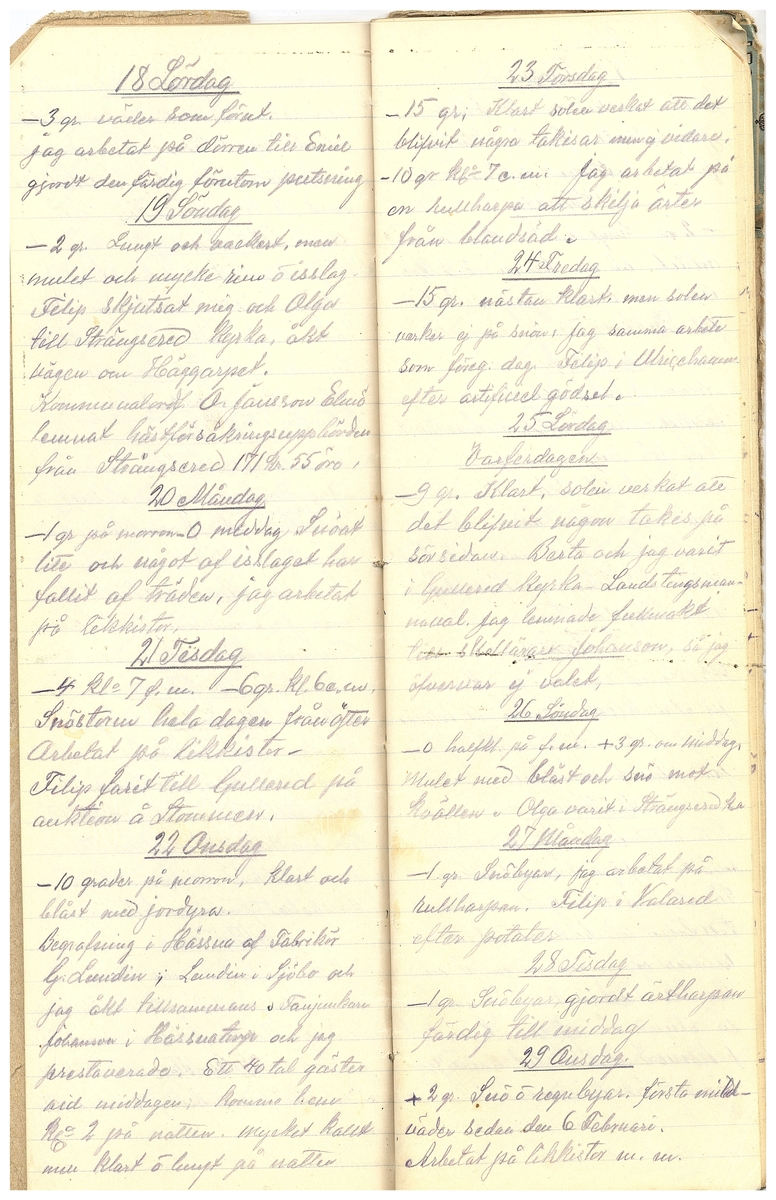 18 Lördag
—3 gr. väder som förut.
jag arbetat på dörren till Emil
gjordt den färdig förutom putsning
19 Söndag
—2 gr. Lungt och vackert, men
mulet och mycke rim ö isslag.
Filip skjutsat mig och Olga
till Strängsered Kyrka, åkt
vägen om Häggarpet.
Kommunalordf O. Janson Elmö
lemnat hästförsäkringsuppbörden
från Strängsered 171 kr. 55 öre,
20 Måndag
—1 gr på morron —0 meddag Snöat
lite och något af isslaget har
fallit af träden, jag arbetat
på likkistor.
21 Tisdag
—4 kl= 7 f.m. —6 gr. kl. 6 e.m.
Snöstorm hela dagen från öster
Arbetat på likkistor—
Filip farit till Gullered på
auktion å Stommen.
22 Onsdag
—10 grader på morron, klart och
blåst med jordyra.
Begrafning i Hössna af Fabrikör
G. Lundin; Lundin i Sjöbo och
jag åkt tillsammans.
Johanson i Hössnatorp och jag
prestaverade. Ett 40 tal gäster
vid middagen, komma hem
Kl= 2 på natten. mycket kallt
men klart ö lungt på natten
23 Torsdag
—15 gr; Klart solen verkat att det
blifvit några takisar men ej vidare.
—10 gr kl= 7 e.m. Jag arbetat på
en rullharpa att skilja ärter
från blandsäd.
24 Fredag
—15 gr. nästan klart. men solen
verker ej på snön, jag samma arbete
som föreg. dag. Filip i Ulricehamn
efter artificiel gödsel.
25 Lördag
Varferdagen
—9 gr. Klart, solen verkat att
det blifvit någon takis på
sörsidan. Berta och jag varit
i Gullered Kyrka — Landstingsman-
naval. jag lemnade fullmakt
till Skollärare Johanson, så jag
öfvervar ej valet.
26 Söndag
—0 halfkl. på f.m. +3 gr. om middag.
Mulet med blåst och snö mot
kvällen. Olga varit i Strängsered k:a
27 Måndag
—1 gr. Snöbyar, jag arbetat på
rullharpan. Filip i Valared
efter potater
28 Tisdag
—1 gr. Snöbyar, gjordt ärtharpan
färdig till middag
29 Onsdag.
+2 gr. Snö ö regnbyar. första mild-
väder sedan den 6 Februari.
Arbetat på likkistor m. m.